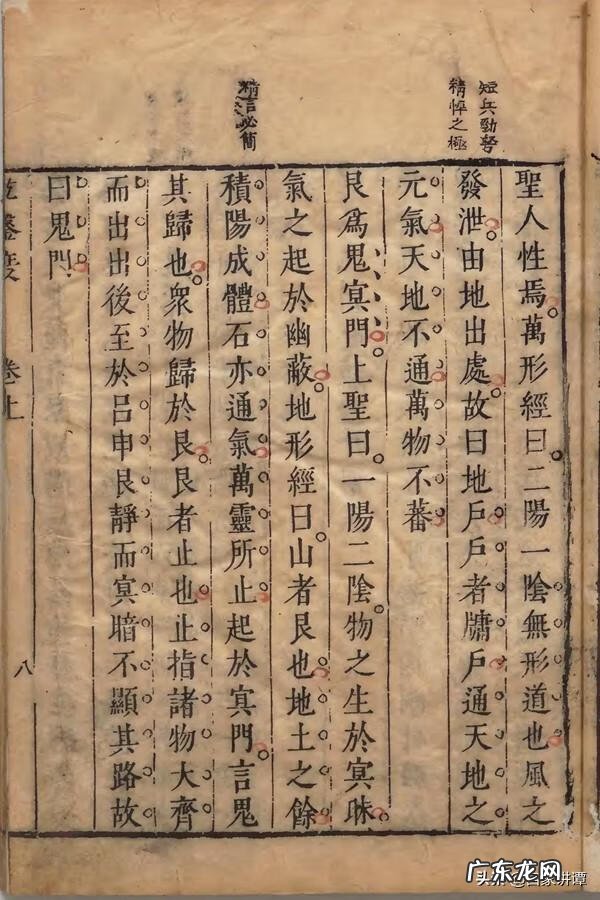 短兵勁弩
精悍之極
精言必簡
聖人性焉萬形經曰二陽一陰無形道也風之
發泄由地出處故曰地戶戶者牖戶通天地之
元氣天地不通萬物不蕃
艮爲鬼冥門上聖曰一陽二陰物之生於冥昧
氣之起於幽蔽地形經曰山者艮也地土之餘
積陽成體石亦通氣萬靈所止起於冥門言鬼
其歸也衆物歸於艮艮者止也止指諸物大齊
而出出後至於呂申艮靜而冥暗不顯其路故
曰鬼門
乾鑿度
卷上
八
广东龙网
头条 @百家讲谭